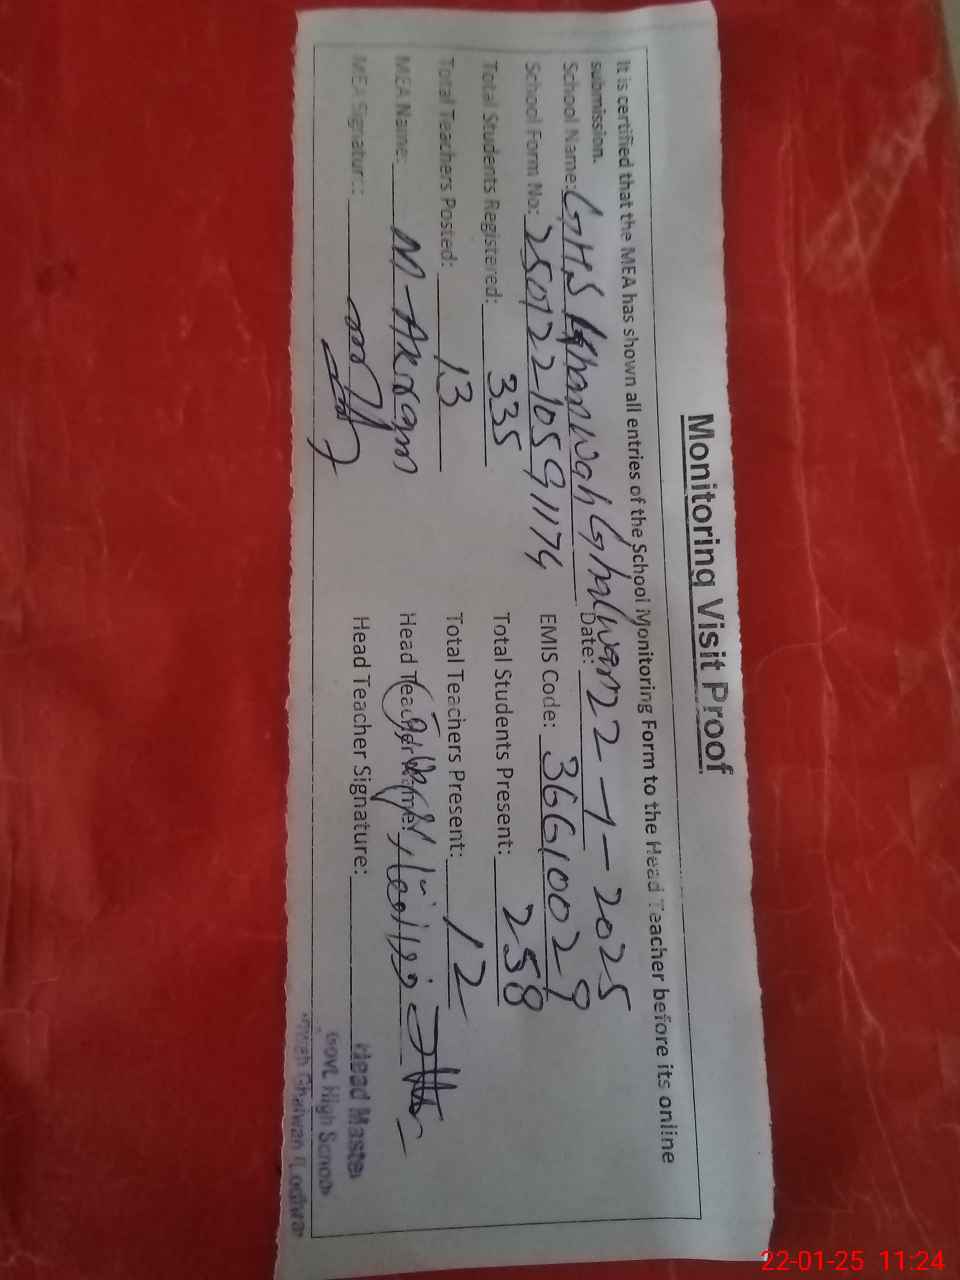 Monitoring Visit Proof
It is certified that the MEA has shown all entries of the School Monitoring Form to the Head Teacher before its online
submission.
School Name: GHS Khanwah Ghalwan Date: 22-1-2025
School Form No: 25012210591174 EMIS Code: 36610029
Total Students Registered: 335 Total Students Present: 258
Total Teachers Posted: 13 Total Teachers Present: 12
MEA Name: M-Akram Head Teacher Name:
MEA Signature: Head Teacher Signature:
Head Master
Govt. High School
Ghalwan (Lodhran
22-01-25 11:24